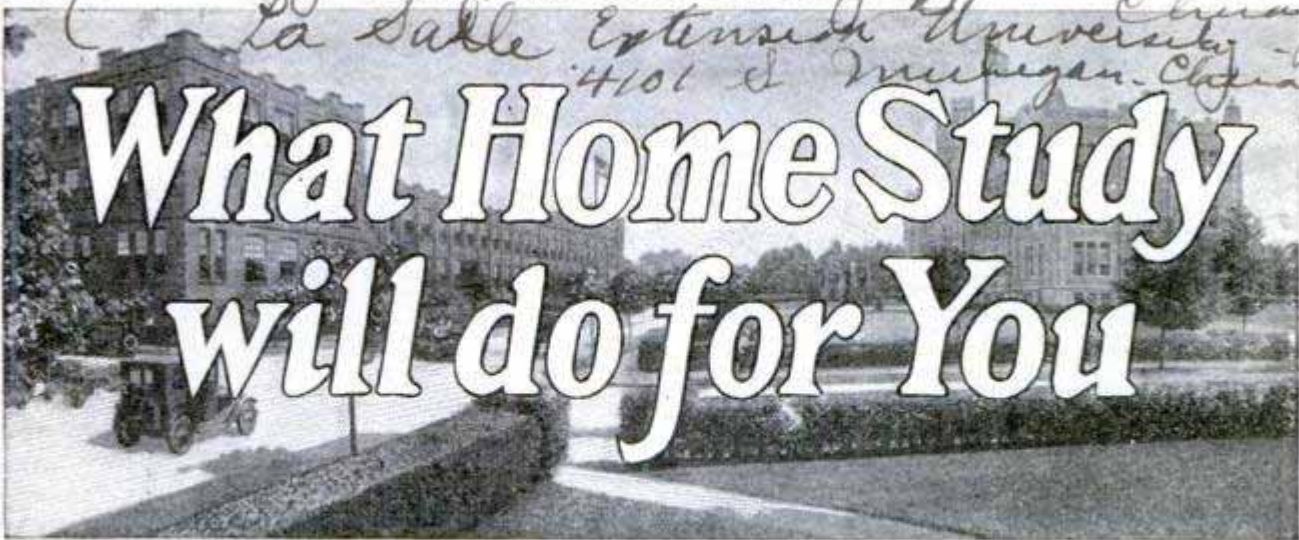 La Salle Extension University
4101 S Michigan - Chica
What Home Study
will do for You